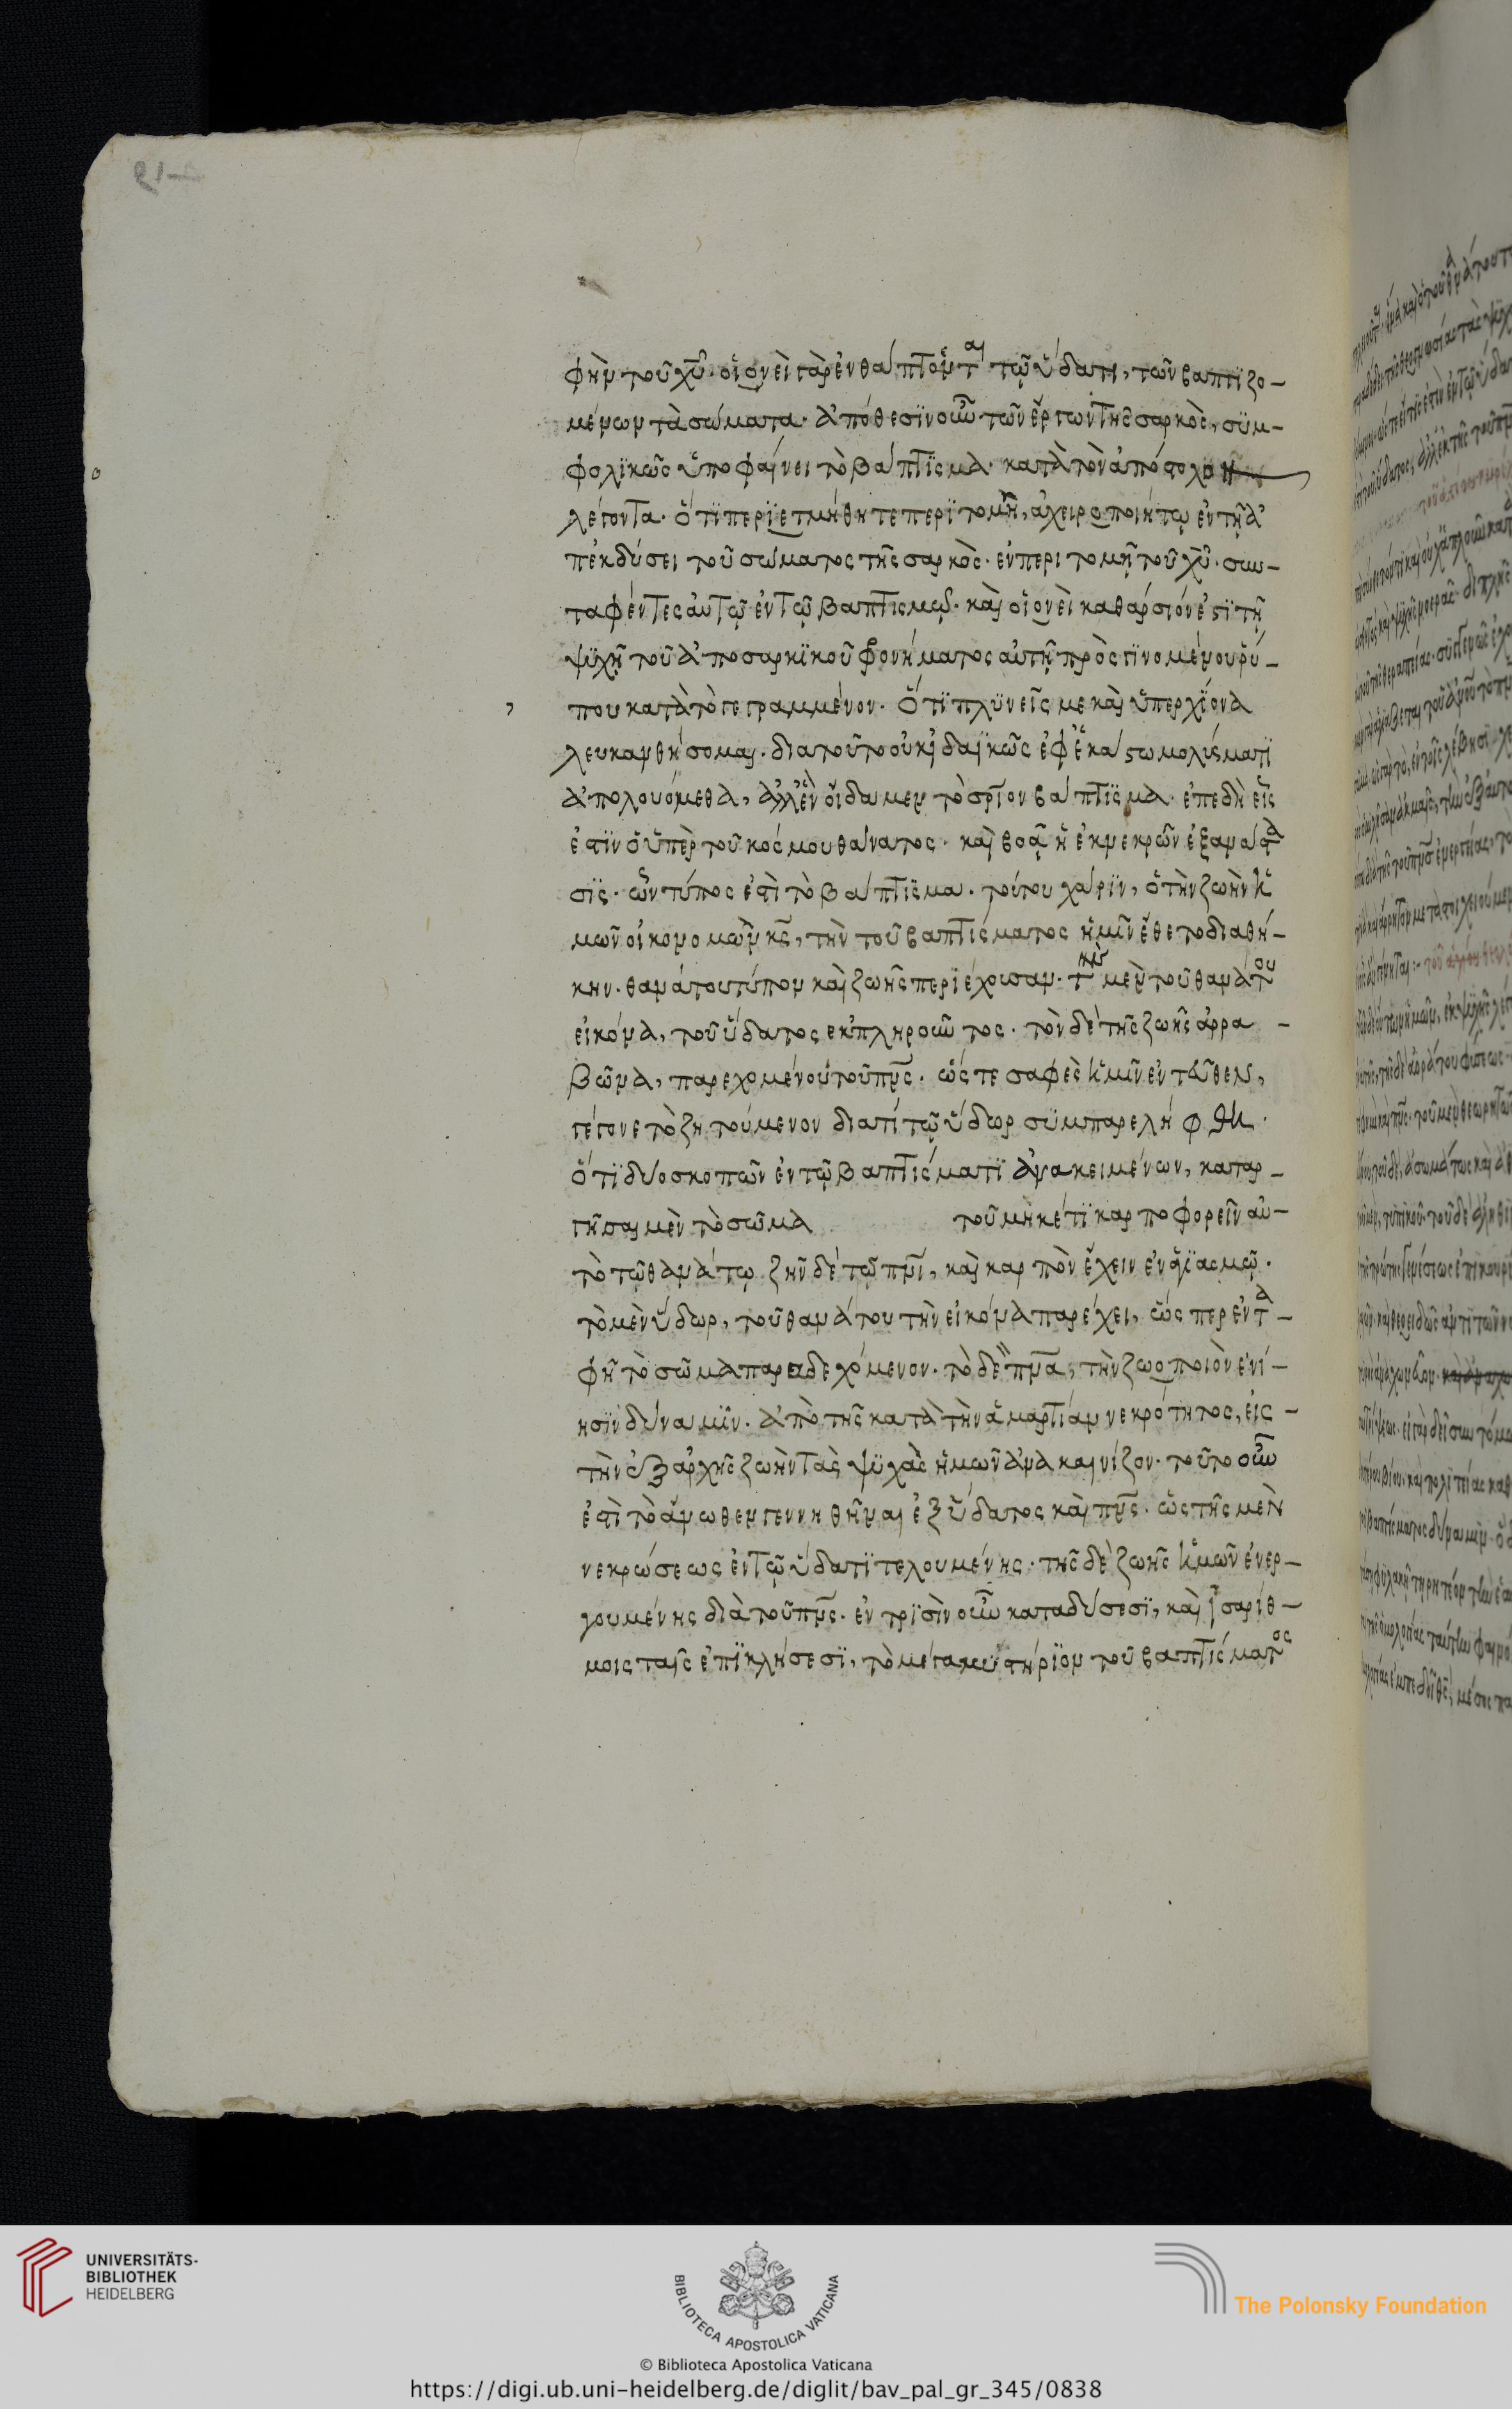 φὴν τοῦ χυ̅· οἱονεὶ γὰρ ἐνθάπτοντ αι τῷ ὕδατι, τῶν βαπτϊζο-
μένων τὰ σώματα· ἀπόθεσϊν οὖν τῶν ἔργων τῆς σαρκὸς, σϋμ-
βολϊκῶς ὑποφαίνει τὸ βάπτϊσμα· κατὰ τὸν ἀπόστολον
λέγοντα· ὅτϊ περϊετμήθητε περϊτομῆ, ἀχειροποιήτω ἐν τῆ ἀ
πεκδύσει τοῦ σώματος τῆς σαρκὸς· ἐν περιτομῆ τοῦ χυ̅· συν-
ταφέντες αὐτῶ ἐν τῶ βαπτισμῶ· καὶ οἱονεὶ καθάρσιόν ἐστϊ τῆ
ψϋχῆ τοῦ ἀπο σαρκϊκοῦ φρονήματος αὐτῆ προσγϊνομένου ῥύ-
που κατὰ τὸ γεγραμμένον· ὅτϊ πλϋνεῖς με καὶ ὑπερ χϊόνα
λευκανθήσομαι· διατοῦτο οὐκ ἰδαϊκῶς ἐφ' ἑκάστω μολύσματϊ
ἀπολουόμεθα, ἀλλ' ἓν οἴδαμεν τὸ σρϊον βάπτϊσμα· ἐπεδὴ εἷς
ἐστϊν ὁ ὑπὲρ τοῦ κόσμου θάνατος· καὶ βοᾶ ἡ ἐκ νεκρῶν ἐξανάστα
σϊς· ὧν τύπος ἐστὶ τὸ βάπτϊσμα· τούτου χάρϊν, ὁ τὴν ζωὴν ἡ
μῶν οἰκονομῶν κς̅, τὴν τοῦ βαπτίσματος ἡμῖν ἔθετο διαθή-
κην· θανάτου τύπον καὶ ζωῆς περϊέχουσαν· τ ην μὲν τοῦ θανάτ ου
εἰκόνα, τοῦ ὕδατος ἐκπληροῦντος· τὸν δὲ τῆς ζωῆς ἀρρα-
βῶνα, παρεχομένου τοῦ πνς̅· ὥστε σαφὲς ἡμῖν ἐντεῦθεν,
γέγονε τὸ ζητούμενον διατί τῶ ὕδωρ σϋμπαρελήφθη·
ὅτϊ δύο σκοπῶν ἐν τῶ βαπτίσματϊ ἀνακειμένων, καταρ-
γῆσαι μὲν τὸ σῶμα τοῦ μηκέτϊ καρποφορεῖν αὐ-
τὸ τῶ θανάτω ζῆν δὲ τῶ πνϊ̅, καὶ καρπὸν ἔχειν ἐν ἁγϊασμῶ·
τὸ μὲν ὕδωρ, τοῦ θανάτου τὴν εἰκόνα παρέχει, ὥσπερ ἐν τα-
φῆ τὸ σῶμα παραδεχόμενον· τὸ δὲ πνα̅, τὴν ζωοποιὸν ἐνί-
ησϊν δύναμϊν· ἀπὸ τῆς κατὰ τὴν ἁμαρτίαν νεκρότητος, εἰς-
τὴν ἐξ ἀρχῆς ζωὴν τὰς ψϋχὰς ἡμῶν ἀνακαινίζον· τοῦτο οὖν
ἐστὶ τὸ ἄνωθεν γεννηθῆναι ἐξ ὕδατος καὶ πνς̅· ὡς τῆς μὲν
νεκρώσεως ἐν τῶ ὕδατϊ τελουμένης· τῆς δὲ ζωῆς ἡμῶν ἐνερ-
γουμένης διὰ τοῦ πνς̅· ἐν τρϊσὶν οὖν καταδύσεσϊ, καὶ ἰσαρίθ-
μοις ταῖς ἐπϊκλήσεσϊ, τὸ μέγα μυστήρϊον τοῦ βαπτίσματ ος
UNIVERSITÄTS-
BIBLIOTHEK
HEIDELBERG
BIBLIOTECA APOSTOLICA VATICANA
The Polonsky Foundation
© Biblioteca Apostolica Vaticana
https://digi.ub.uni-heidelberg.de/diglit/bav_pal_gr_345/0838